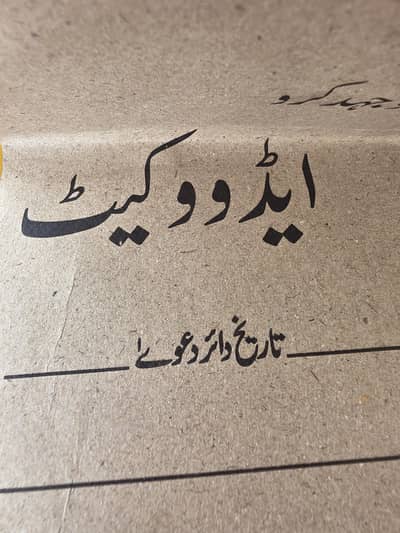 جہد کرو
ایڈووکیٹ
تاریخ دائر دعویٰ